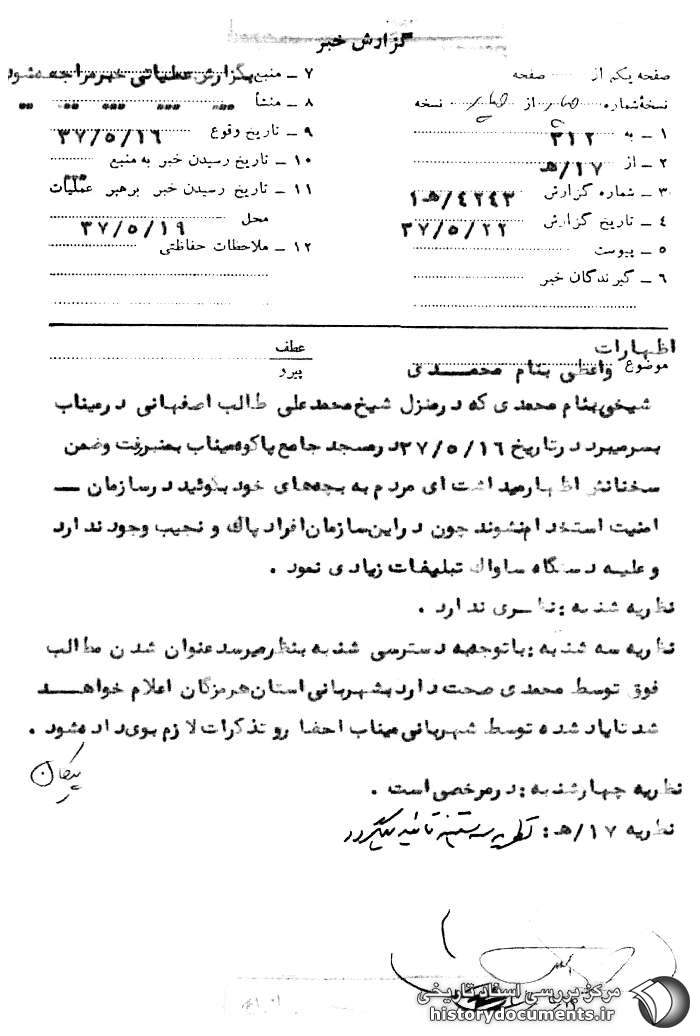 گزارش خبر
صفحه یکم از صفحه
نسخهٔ شماره از نسخه
۱ ــ به ۳۱۲
۲ ــ از ۱۷/هـ
۳ ــ شماره گزارش ۴۲۴۳/هـ۱
۴ ــ تاریخ گزارش ۳۷/۵/۲۲
۵ ــ پیوست
۶ ــ گیرندگان خبر
۷ ــ منبع بگزارش عملیاتی خبر مراجعه شود
۸ ــ منشأ
۹ ــ تاریخ وقوع ۳۷/۵/۱۶
۱۰ ــ تاریخ رسیدن خبر به منبع
۱۱ ــ تاریخ رسیدن خبر برهبر عملیات
محل ۳۷/۵/۱۹
۱۲ ــ ملاحظات حفاظتی
عطف
پیرو
اظهارات
موضوع واعظی بنام محمدی
شیخی بنام محمدی که در منزل شیخ محمد علی طالب اصفهانی در میناب
بسر میبرد در تاریخ ۳۷/۵/۱۶ در مسجد جامع پاکوه میناب بمنبر رفت و ضمن
سخنانش اظهار میداشت ای مردم به بچه‌های خود بگوئید در سازمان ــ
امنیت استخدام نشوند چون در این سازمان افراد پاک و نجیب وجود ندارد
و علیه دستگاه ساواک تبلیغات زیادی نمود .
نظریه شنبه : نظری ندارد .
نظریه سه شنبه : باتوجه به دسترسی شنبه بنظر میرسد عنوان شدن مطالب
فوق توسط محمدی صحت دارد بشهربانی استان هرمزگان اعلام خواهد
شد تا یاد شده توسط شهربانی میناب احضار و تذکرات لازم بوی داده شود .
پیکان
نظریه چهارشنبه : در مرخصی است .
نظریه ۱۷/هـ : نظریه سه شنبه تائید میگردد
مرکز بررسی اسناد تاریخی
historydocuments.ir